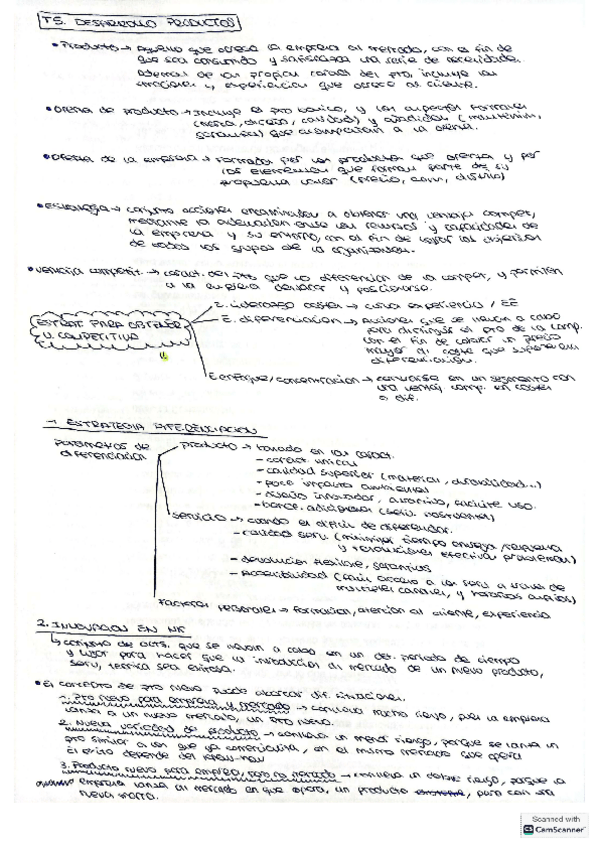 T5. DESARROLLO PRODUCTOS
• Producto → Aquello que ofrece la empresa al mercado, con el fin de
que sea consumido y satisfazca una serie de necesidades.
Además de las propias caract del pro, incluye las
emociones y experiencias que ofrece al cliente.
• Oferta de producto → Incluye el pro básico, y los aspectos formales
(marca, diseño, calidad) y añadidos (mantenim,
garantía) que acompañan a la oferta.
• Oferta de la empresa → Formada por los productos que oferta y por
los elementos que forman parte de su
propuesta valor (precio, com, distrib)
• Estrategia → conjunto acciones encaminadas a obtener una ventaja compet,
mediante la adecuación entre los recursos y capacidades de
la empresa y su entorno, con el fin de lograr los objetivos
de todos los grupos de la organización.
• Ventaja competit. → caract. del pro que lo diferencian de la compet, y permiten
a la empresa destacar y posicionarse.
ESTRAT PARA OBTENER
V. COMPETITIVA
E. liderazgo costes → curva experiencia / EE
E. diferenciación → acciones que se llevan a cabo
para distinguir el pro de la comp.
con el fin de cobrar un precio
mayor al coste que supone la
diferenciación.
E enfoque/concentracion → centrarse en un segmento con
una ventaj comp. en costes
o dif.
ESTRATEGIA DIFERENCIACION
Parámetros de
diferenciacion
producto → basado en las caract.
- caract. únicas
- calidad superior (material, durabilidad...)
- poco impacto ambiental
- diseño innovador, autonomo, facilite uso.
- adicionales
Servicio → cuando es dificil de diferenciar.
- calidad serv. (minimizar tiempo entrega/respuesta
y resoluciones efectivas problemas)
- devolucion flexible, garantias
- accesibilidad (facil acceso a los serv a traves de
multiples canales, y horarios amplios)
Factores personales → formacion, atencion al cliente, experiencia
2. INNOVACION EN
↳ conjunto de acts. que se llevan a cabo en un det. periodo de tiempo
y lugar para hacer que la introduccion al mercado de un nuevo producto,
serv, tecnica sea exitosa.
• El concepto de pro nuevo puede abarcar dif. situaciones.
1. Pro nuevo para empresa y mercado → conlleva mucho riesgo, pues la empresa
lanza a un nuevo mercado, un pro nuevo.
2. Nueva variedad de producto → conlleva un menor riesgo, porque se lanza un
pro similar a los que ya comercializa, en el mismo mercado que opera
El exito depende del
3. Producto nuevo para empresa, pero no mercado → conlleva un riesgo, porque la
empresa lanza al mercado en que opera, un producto, pero con una
nueva marca.
Scanned with
CS CamScanner